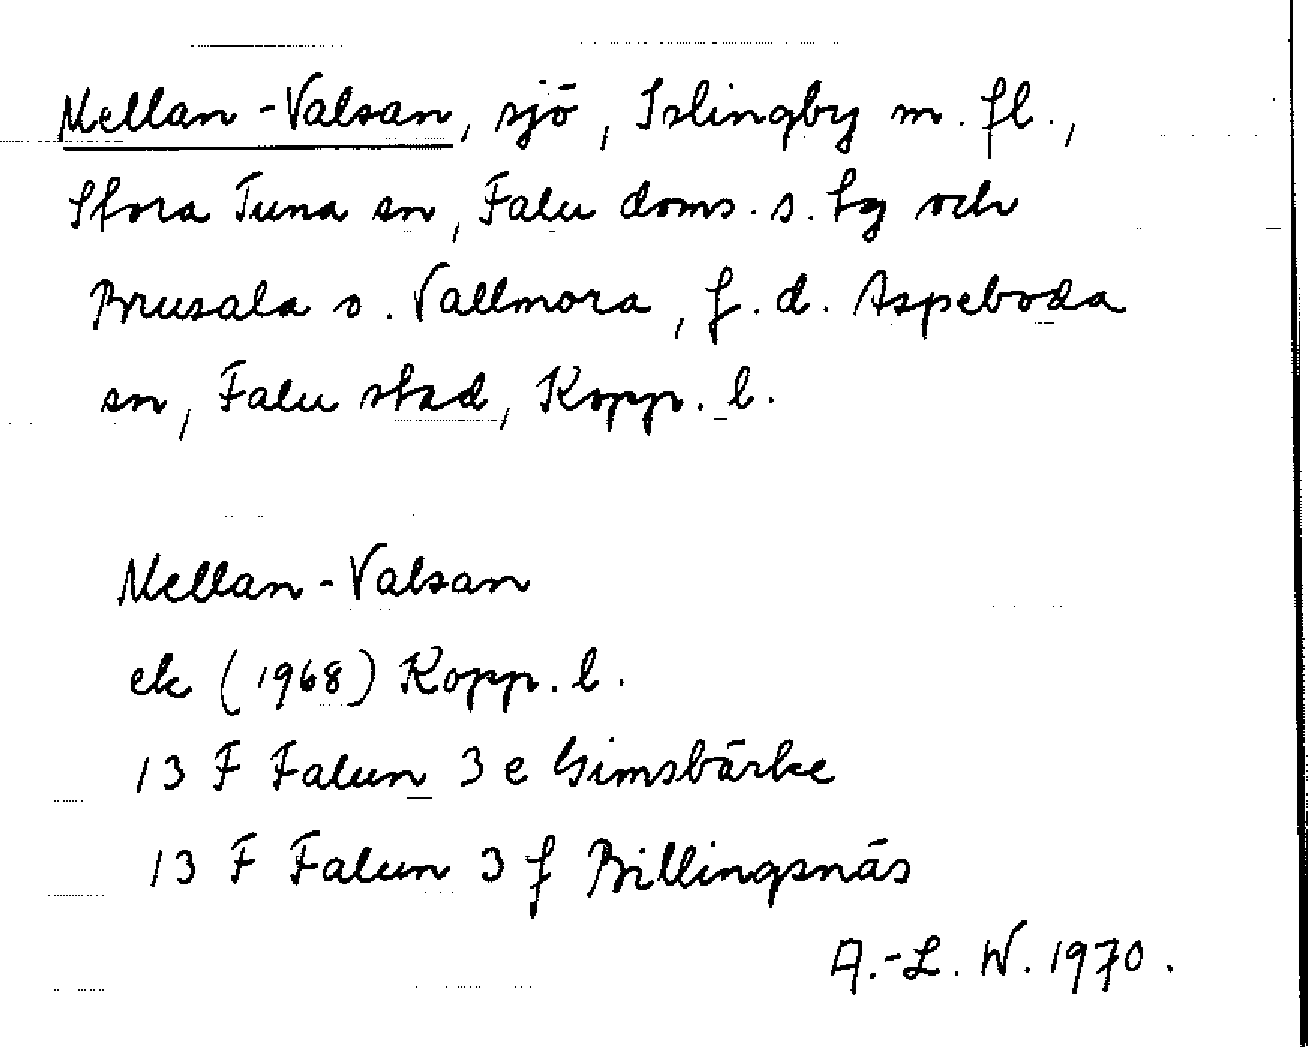 Mellan-Valsan, sjö, Islingby m. fl.,
Stora Tuna sn, Falu doms. s. tg och
Brusala o. Vallmora, f. d. Aspeboda
sn, Falu stad, Kopp. l.
Mellan-Valsan
ek (1968) Kopp. l.
13 F Falun 3 e Gimsbärke
13 F Falun 3 f Billingsnäs
A.-L. W. 1970.